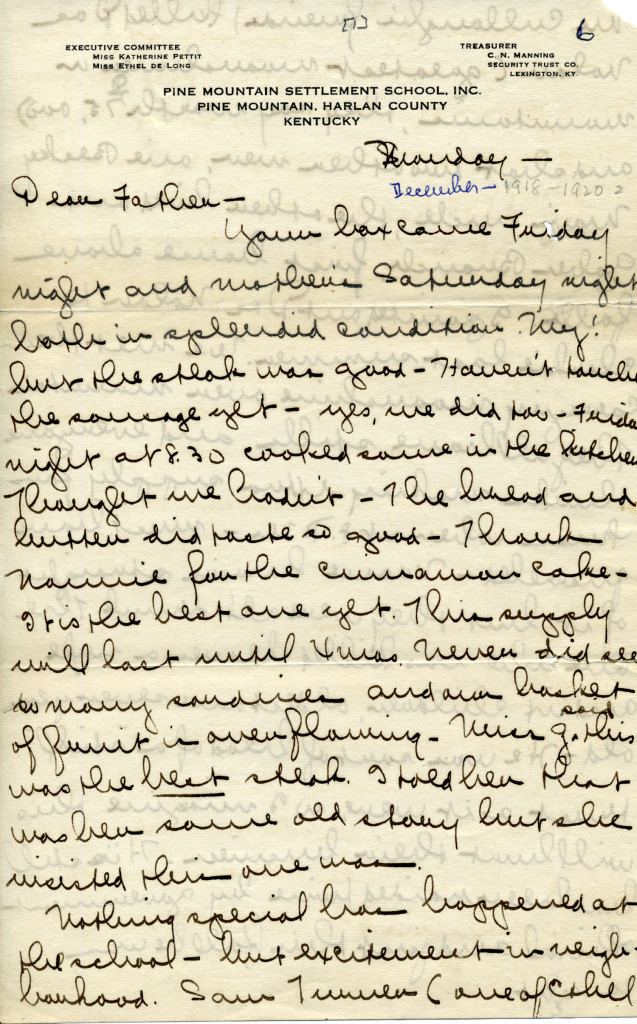 [1]
6
EXECUTIVE COMMITTEE
MISS KATHERINE PETTIT
MISS ETHEL DE LONG
TREASURER
C. N. MANNING
SECURITY TRUST CO.
LEXINGTON, KY.
PINE MOUNTAIN SETTLEMENT SCHOOL, INC.
PINE MOUNTAIN, HARLAN COUNTY
KENTUCKY
Monday —
December – 1918 – 1920 ?
Dear Father –
Your box came Friday
night and mother's Saturday night
both in splendid condition. My!
but the steak was good – Haven't touche
the sausage yet – yes, we did too – Frida
night at 8.30 cooked some in the kitchen
Thought we had it – The bread and
butter did taste so good – Thank
Nannie for the cinnamon cake –
It is the best one yet. This supply
will last until Xmas. Never did see
so many sardines and our basket
of fruit is overflowing – Miss G. said this
was the best steak. I told her that
was her same old story but she
insisted this one was.
Nothing special has happened at
the school – but excitement in neigh-
borhood. Sam Turner (one of Ethel